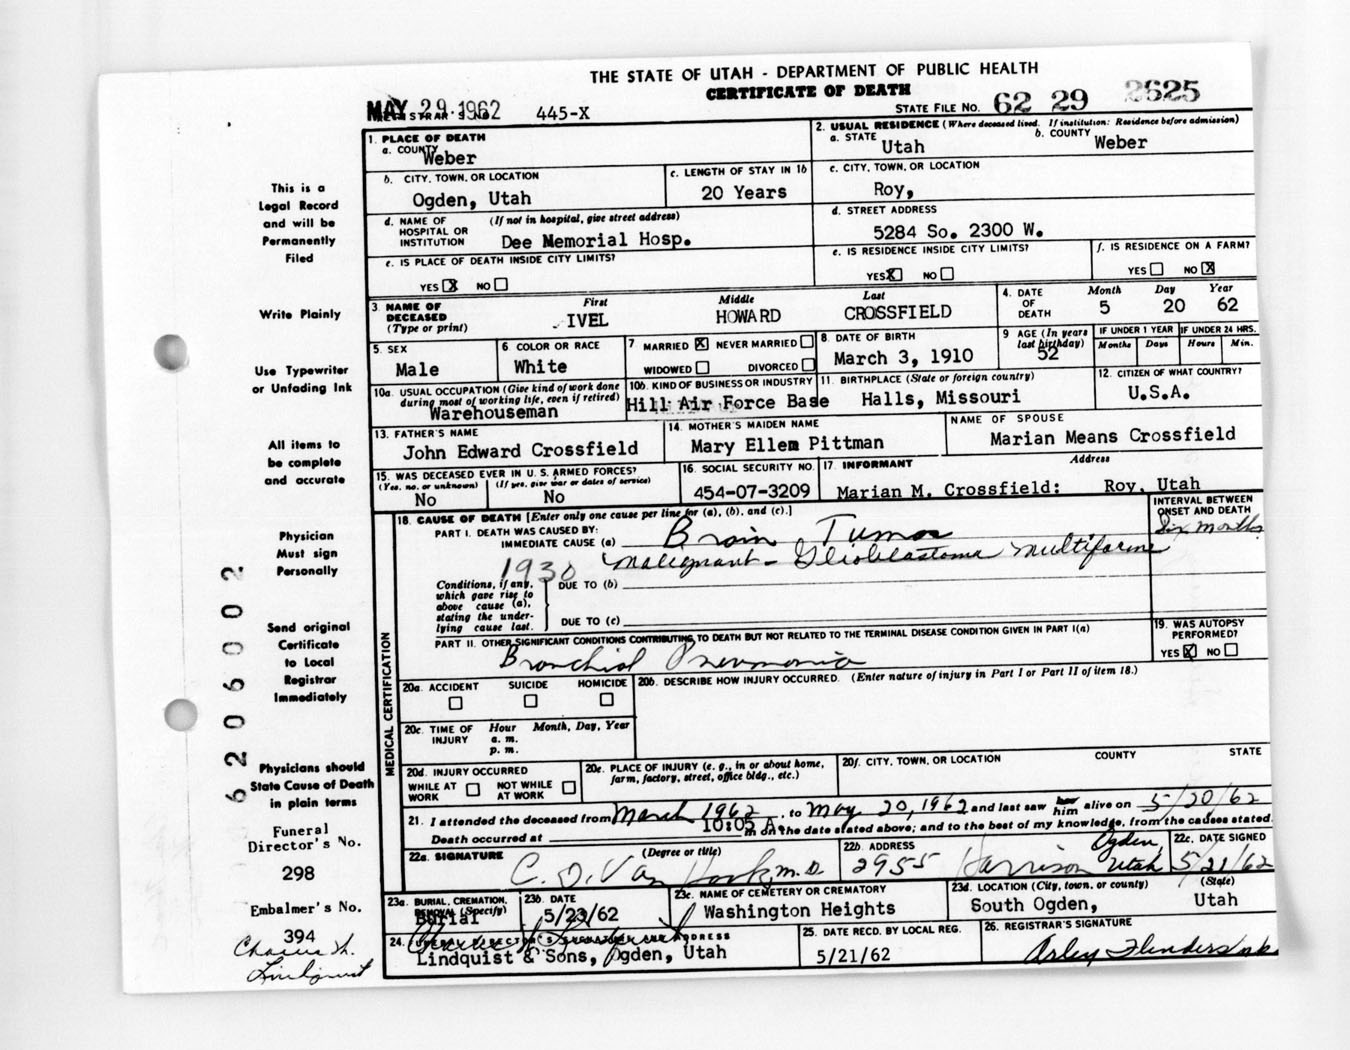 THE STATE OF UTAH - DEPARTMENT OF PUBLIC HEALTH
CERTIFICATE OF DEATH
MAY 29 1962 445-X STATE FILE NO. 62 29 2625
1. PLACE OF DEATH
a. COUNTY Weber
2. USUAL RESIDENCE (Where deceased lived. If institution: Residence before admission)
a. STATE Utah b. COUNTY Weber
b. CITY, TOWN, OR LOCATION Ogden, Utah
c. LENGTH OF STAY IN 1b 20 Years
c. CITY, TOWN, OR LOCATION Roy,
d. NAME OF HOSPITAL OR INSTITUTION (If not in hospital, give street address) Dee Memorial Hosp.
d. STREET ADDRESS 5284 So. 2300 W.
e. IS PLACE OF DEATH INSIDE CITY LIMITS? YES X NO
e. IS RESIDENCE INSIDE CITY LIMITS? YES X NO
f. IS RESIDENCE ON A FARM? YES NO X
3. NAME OF DECEASED (Type or print) First IVEL Middle HOWARD Last CROSSFIELD
4. DATE OF DEATH Month 5 Day 20 Year 62
5. SEX Male
6. COLOR OR RACE White
7. MARRIED X NEVER MARRIED
WIDOWED DIVORCED
8. DATE OF BIRTH March 3, 1910
9. AGE (In years last birthday) 52
IF UNDER 1 YEAR Months Days
IF UNDER 24 HRS. Hours Min.
10a. USUAL OCCUPATION (Give kind of work done during most of working life, even if retired) Warehouseman
10b. KIND OF BUSINESS OR INDUSTRY Hill Air Force Base
11. BIRTHPLACE (State or foreign country) Halls, Missouri
12. CITIZEN OF WHAT COUNTRY? U.S.A.
13. FATHER'S NAME John Edward Crossfield
14. MOTHER'S MAIDEN NAME Mary Ellen Pittman
NAME OF SPOUSE Marian Means Crossfield
15. WAS DECEASED EVER IN U. S. ARMED FORCES?
(Yes, no, or unknown) No (If yes, give war or dates of service) No
16. SOCIAL SECURITY NO. 454-07-3209
17. INFORMANT Address
Marian M. Crossfield: Roy, Utah
MEDICAL CERTIFICATION
18. CAUSE OF DEATH [Enter only one cause per line for (a), (b), and (c).]
INTERVAL BETWEEN ONSET AND DEATH
PART I. DEATH WAS CAUSED BY:
IMMEDIATE CAUSE (a) Brain Tumor Six months
1930 Malignant - Glioblastoma Multiforme
Conditions, if any, which gave rise to above cause (a), stating the underlying cause last.
DUE TO (b)
DUE TO (c)
PART II. OTHER SIGNIFICANT CONDITIONS CONTRIBUTING TO DEATH BUT NOT RELATED TO THE TERMINAL DISEASE CONDITION GIVEN IN PART I(a)
Bronchial Pneumonia
19. WAS AUTOPSY PERFORMED? YES X NO
20a. ACCIDENT SUICIDE HOMICIDE
20b. DESCRIBE HOW INJURY OCCURRED. (Enter nature of injury in Part I or Part II of item 18.)
20c. TIME OF INJURY Hour a. m. p. m. Month, Day, Year
20d. INJURY OCCURRED
WHILE AT WORK NOT WHILE AT WORK
20e. PLACE OF INJURY (e. g., in or about home, farm, factory, street, office bldg., etc.)
20f. CITY, TOWN, OR LOCATION COUNTY STATE
21. I attended the deceased from March 1962, to May 20, 1962 and last saw her him alive on 5/20/62
Death occurred at 10:05 A. m on the date stated above; and to the best of my knowledge, from the causes stated.
22a. SIGNATURE (Degree or title) C. D. Van Hook, M.D.
22b. ADDRESS 2955 Harrison Ogden, Utah
22c. DATE SIGNED 5/21/62
23a. BURIAL, CREMATION, REMOVAL (Specify) Burial
23b. DATE 5/23/62
23c. NAME OF CEMETERY OR CREMATORY Washington Heights
23d. LOCATION (City, town, or county) (State) South Ogden, Utah
24. FUNERAL DIRECTOR'S SIGNATURE AND ADDRESS
Lindquist & Sons, Ogden, Utah
25. DATE RECD. BY LOCAL REG. 5/21/62
26. REGISTRAR'S SIGNATURE
This is a
Legal Record
and will be
Permanently
Filed
Write Plainly
Use Typewriter
or Unfading Ink
All items to
be complete
and accurate
Physician
Must sign
Personally
Send original
Certificate
to Local
Registrar
Immediately
Physicians should
State Cause of Death
in plain terms
Funeral
Director's No.
298
Embalmer's No.
394
Lindquist
6206002